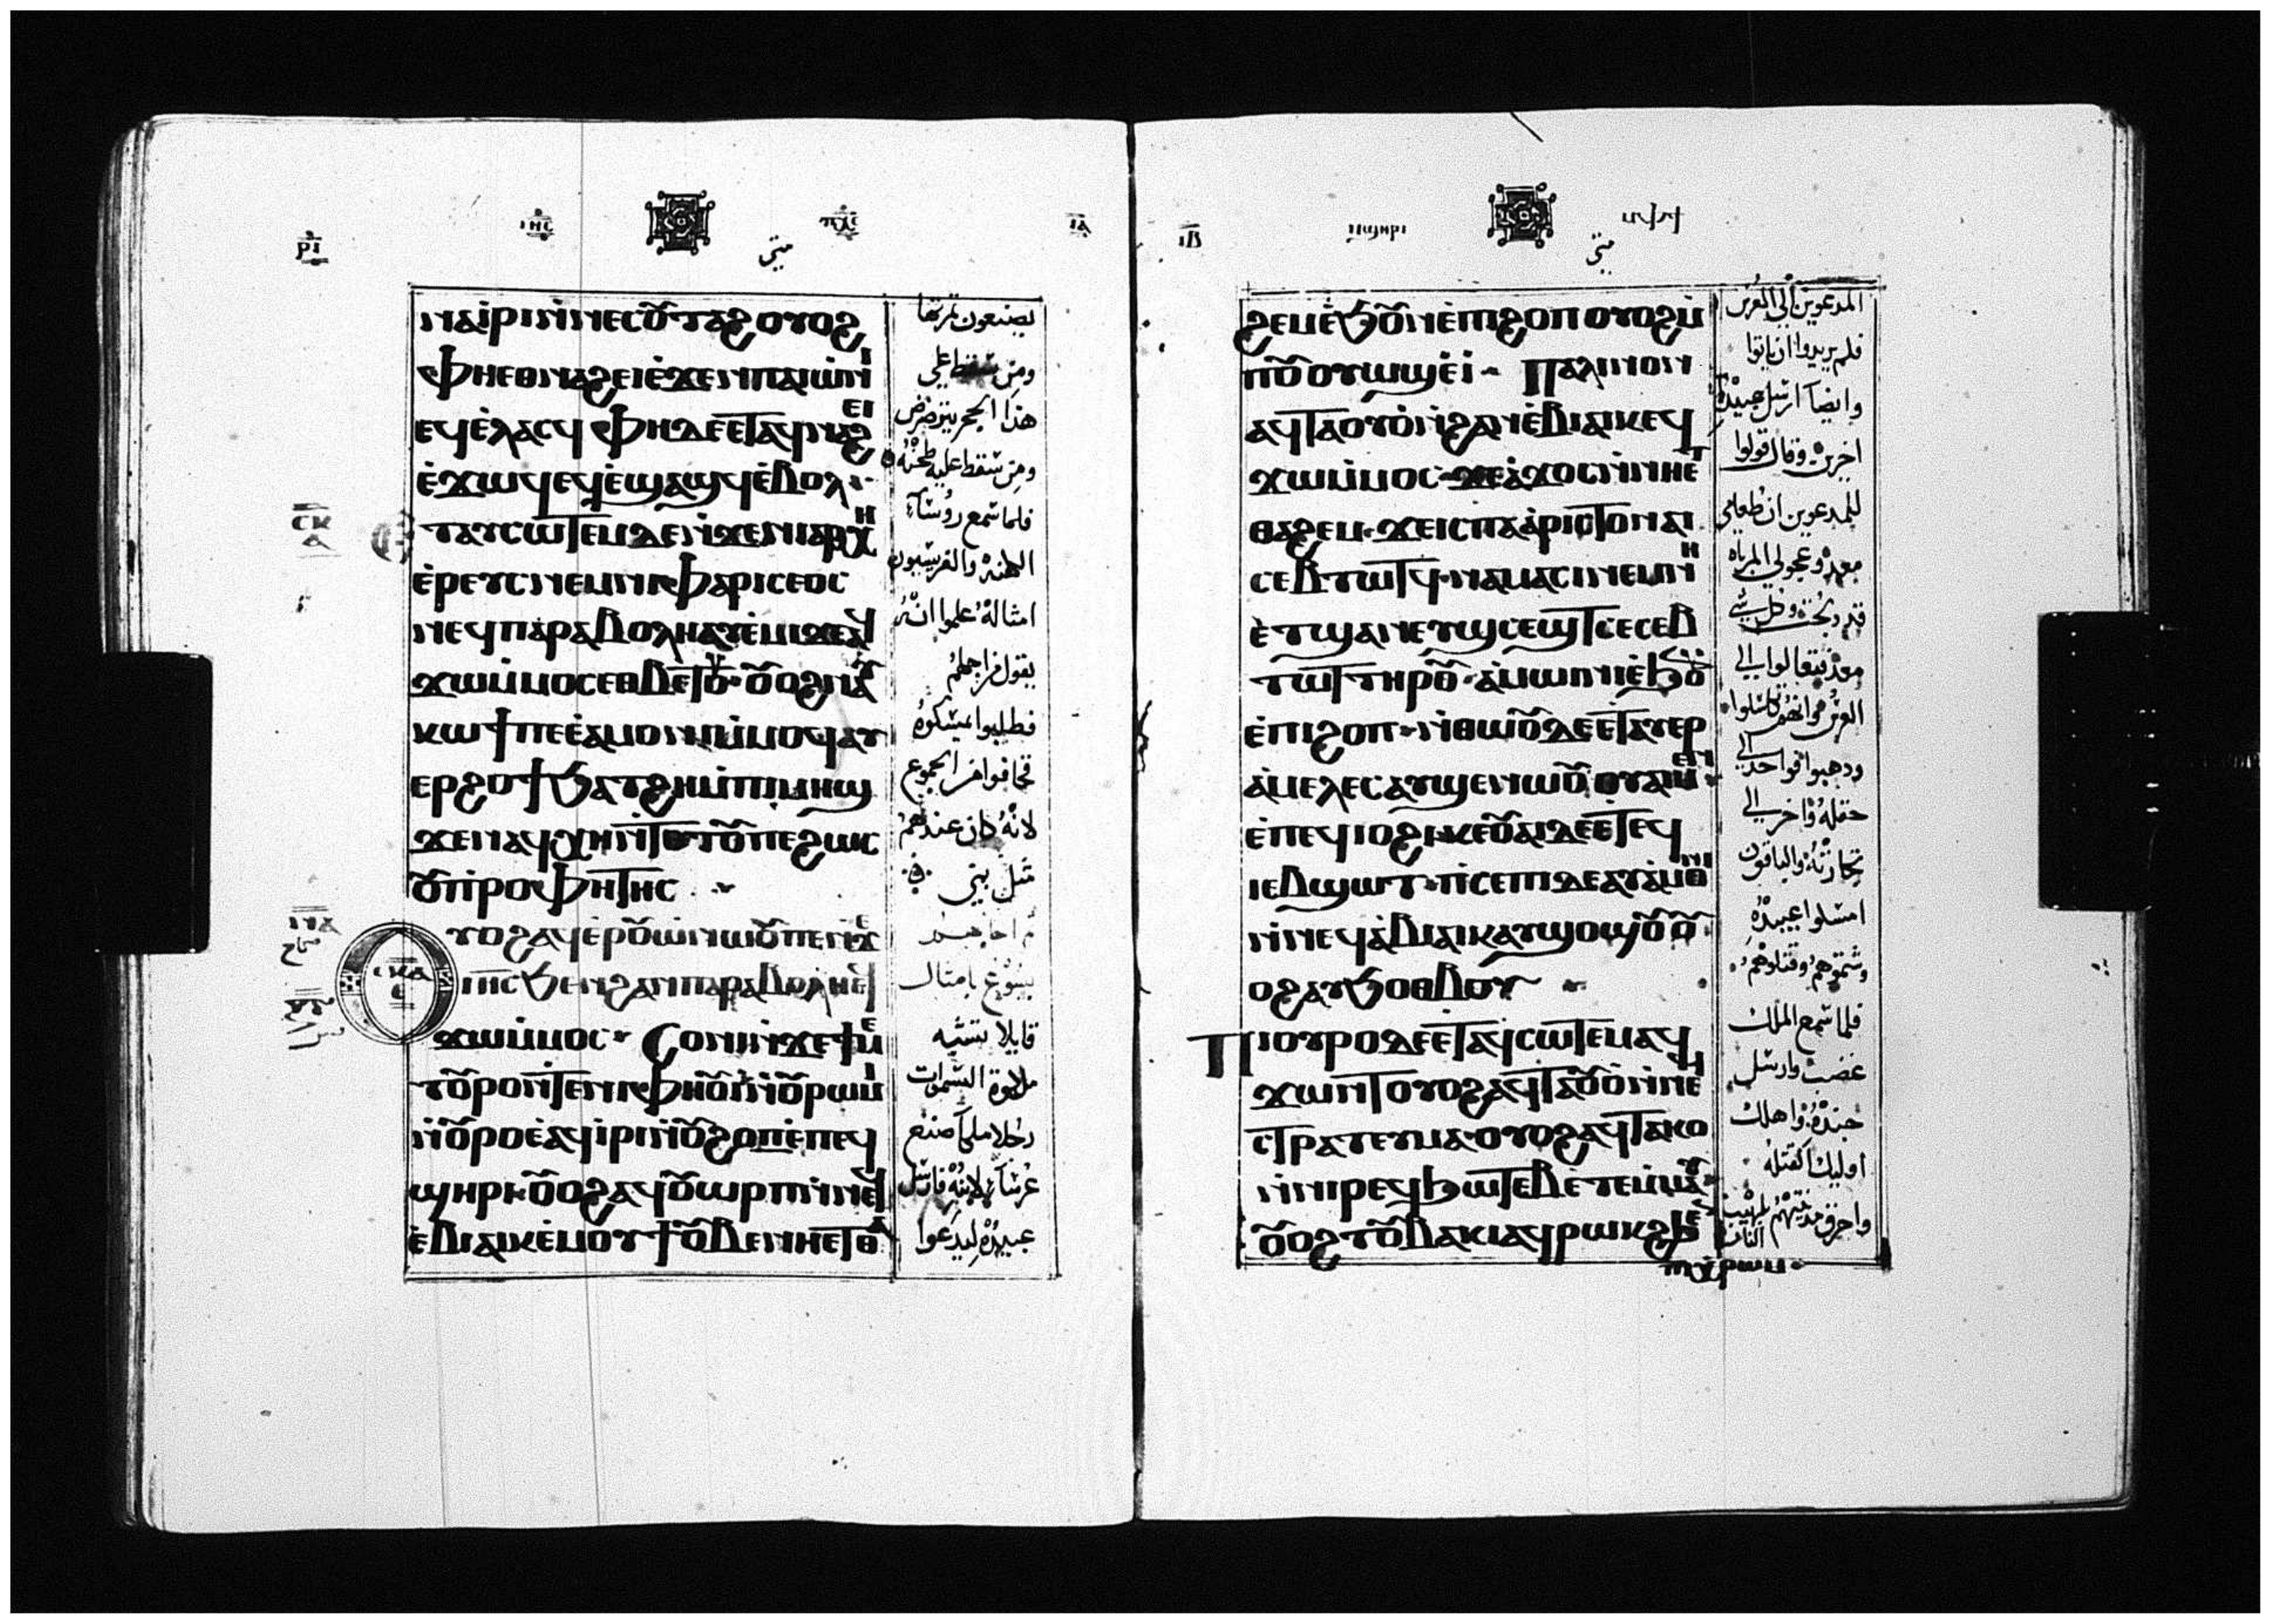 ⲣⲓ
ⲓⲏⲥ ⲡⲭⲥ
ⲓⲁ
متى
ⲛⲁⲓⲣⲓⲛ̀ⲛⲉⲥⲟⲩⲧⲁϩ ⲟⲩⲟϩ
ⲫⲏⲉⲑⲛⲁϩⲉⲓⲉ̀ϫⲉⲛⲡⲁⲓⲱⲛⲓ
ⲉϥⲉ̀ⲗⲁⲥϥ ⲫⲏⲇⲉⲉⲧⲁϥⲛⲁϩⲉⲓ
ⲉ̀ϫⲱϥⲉϥⲉ̀ϣⲁϣϥⲉ̀ⲃⲟⲗ
ⲧⲁⲩⲥⲱⲧⲉⲙⲇⲉⲛ̀ϫⲉⲛⲓⲁⲣⲭⲏ
ⲉ̀ⲣⲉⲩⲥⲛⲉⲙⲛⲓⲫⲁⲣⲓⲥⲉⲟⲥ
ⲛⲉϥⲡⲁⲣⲁⲃⲟⲗⲏⲁⲩⲉ̀ⲙⲓϫⲉⲁϥ
ϫⲱⲙ̀ⲙⲟⲥⲉⲑⲃⲉⲧⲟⲩ ⲟⲩⲟϩⲛⲁⲩ
ⲕⲱϯⲡⲉⲉ̀ⲁⲙⲟⲛⲓⲙ̀ⲙⲟϥⲁⲩ
ⲉⲣϩⲟϯϧⲁⲧϩⲏⲙ̀ⲡⲓⲙⲏϣ
ϫⲉⲛⲁϥⲭⲏⲛ̀ⲧⲟⲧⲟⲩⲡⲉϩⲱⲥ
ⲟⲩⲡⲣⲟⲫⲏⲧⲏⲥ
ⲩⲟϩⲁϥⲉ̀ⲣⲟⲩⲱ̀ⲛⲱⲟⲩⲡⲉⲛϫⲉ
ⲓⲏⲥϧⲉⲛϩⲁⲛⲡⲁⲣⲁⲃⲟⲗⲏⲉϥ
ϫⲱⲙ̀ⲙⲟⲥ ⲥⲟⲛⲓⲛ̀ϫⲉϯⲙⲉ
ⲧⲟⲩⲣⲟⲛ̀ⲧⲉⲛⲓⲫⲏⲟⲩⲓ̀ⲛ̀ⲟⲩⲣⲱⲙⲓ
ⲛ̀ⲟⲩⲣⲟⲉ̀ⲁϥⲓ̀ⲣⲓⲛ̀ⲟⲩϩⲟⲡⲉ̀ⲡⲉϥ
ϣⲏⲣⲓ ⲟⲩⲟϩⲁϥⲟⲩⲱⲣⲡⲛ̀ⲛⲉϥ
ⲉ̀ⲃⲓⲁⲓⲕⲉ̀ⲙⲟⲩϯⲟⲩⲃⲉⲛⲏⲉⲧⲑⲁ
يصنعون ثمرتها
ومن سقط على
هذا الحجر يترضرض
ومن سقط عليه طحنه
فلما سمع روساء
الكهنة والفريسيون
امثاله علموا انه
يقول من اجلهم
فطلبوا يمسكوه
فخافوا من الجموع
لانه كان عندهم
مثل نبي
يسوع بامثال
قايلا تشبه
ملكوة السموات
رجلا ملكا صنع
عرسا لابنه فارسل
عبيده ليدعوا
ⲓⲃ
ⲡϣⲏⲣⲓ ⲙ̀ⲫϯ
متى
ϩⲉⲙⲉ̀ϧⲟⲩⲛⲉ̀ⲡⲓϩⲟⲡ ⲟⲩⲟϩⲙ̀
ⲡⲟⲩⲟⲩⲱϣⲉ̀ⲓ̀ ⲡⲁⲗⲓⲛⲟⲛ
ⲁϥⲧⲁⲟⲩⲟ̀ⲛ̀ϩⲁⲛⲉ̀ⲃⲓⲁⲓⲕⲉϥ
ϫⲱⲙ̀ⲙⲟⲥ ϫⲉⲁϫⲟⲥⲛ̀ⲛⲏⲉⲧ
ⲑⲁϩⲉⲙ ϫⲉⲓⲥⲡⲁⲁ̀ⲣⲓⲥⲧⲟⲛⲁⲓ
ⲥⲉⲃⲧⲱⲧϥ ⲛⲁⲙⲁⲥⲓⲛⲉⲙⲛⲏ
ⲉ̀ⲧϣⲁⲛⲉⲩϣⲥⲉϣⲧⲥⲉⲥⲉⲃ
ⲧⲱⲧⲧⲏⲣⲟⲩ ⲁ̀ⲙⲱⲓⲛⲓⲉ̀ϧⲟⲩⲛ
ⲉ̀ⲡⲓϩⲟⲡ ⲛ̀ⲑⲱⲟⲩⲇⲉⲉⲧⲁⲩⲉⲣ
ⲁ̀ⲙⲉⲗⲉⲥⲁⲩϣⲉⲛⲱⲟⲩ ⲟⲩⲁⲓⲙⲉⲛ
ⲉ̀ⲡⲉϥⲓⲟϩⲓ ⲕⲉⲟⲩⲁⲓⲇⲉⲉ̀ⲧⲉϥ
ⲓⲉⲃϣⲱⲧ ⲡ̀ⲥⲉⲡⲓⲇⲉⲁⲩⲁ̀ⲙⲟⲛⲓ
ⲛ̀ⲛⲉϥⲉ̀ⲃⲓⲁⲓⲕⲁⲩϣⲟϣⲟⲩ ⲟⲩ
ⲟϩⲁⲩϧⲟⲑⲃⲟⲩ
ⲡⲓⲟⲩⲣⲟⲇⲉⲉⲧⲁϥⲥⲱⲧⲉⲙⲁϥ
ϫⲱⲛⲧⲟⲩⲟϩⲁϥⲧⲁⲟⲩⲟ̀ⲛ̀ⲛⲉϥ
ⲥⲧⲣⲁⲧⲉⲩⲙⲁ ⲟⲩⲟϩⲁϥⲧⲁⲕⲟ
ⲛ̀ⲛⲓⲣⲉϥϧⲱⲧⲉⲃⲉ̀ⲧⲉⲙⲙⲁⲩ
ⲟⲩⲟϩⲧⲟⲩⲃⲁⲕⲓⲁϥⲣⲱⲕϩϧⲉⲛ
ⲡⲓⲭⲣⲱⲙ
المدعوين الى العرس
فلم يريدوا ان ياتوا
وايضا ارسل عبيدا
اخرين وقال قولوا
للمدعوين ان طعامي
معد وعجولي المرباه
قد ذبحت وكل شي
معد تعالوا الى
العرس فهم تكاسلوا
وذهبوا فواحد الى
حقله واخر الى
تجارته والباقون
امسكوا عبيده
وشتموهم وقتلوهم
فلما سمع الملك
غضب وارسل
جنده واهلك
اوليك القتله
واحرق مدينتهم بلهيب
النار